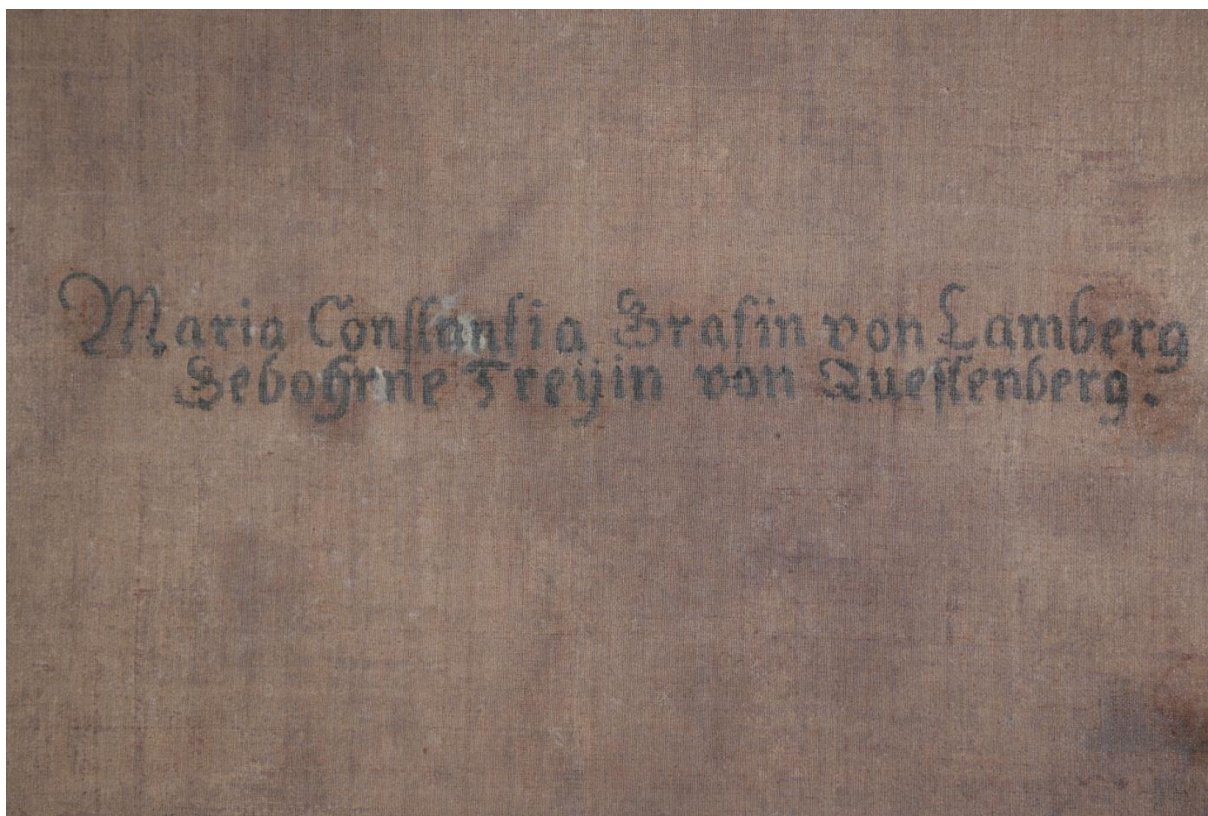 Maria Conſtantia Grafin von Lamberg
Gebohrne Freÿin von Queſtenberg.